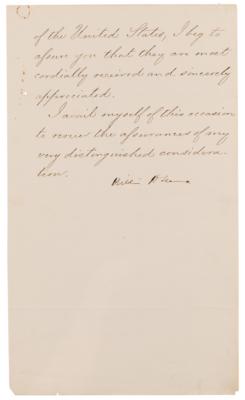 of the United States, I beg to
assure you that they are most
cordially received and sincerely
appreciated.
I avail myself of this occasion
to renew the assurances of my
very distinguished considera-
tion.